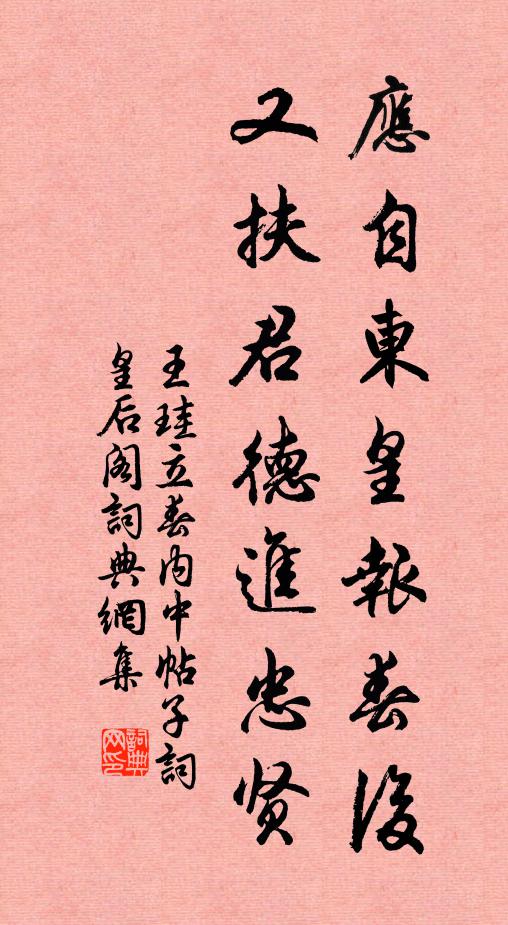 應自東皇報春後
又扶君德進忠贤
王珪立春内中帖子詞
皇后阁詞典網集
詞典网印